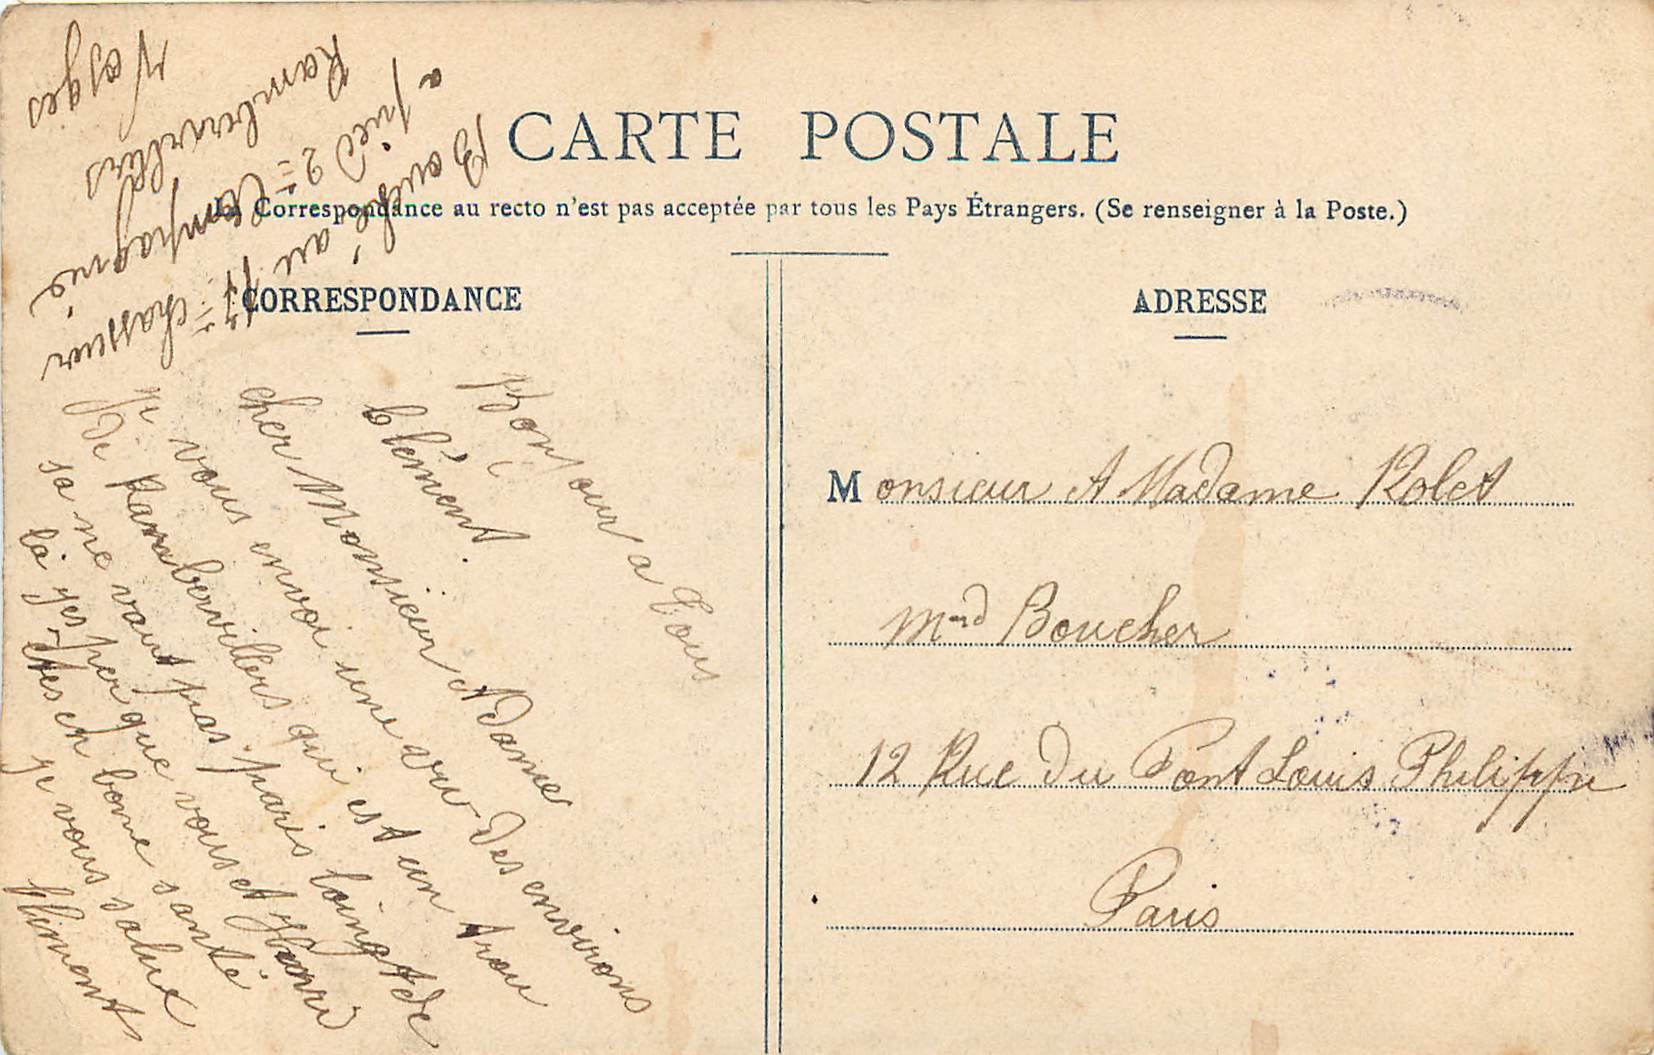 CARTE POSTALE
La Correspondance au recto n'est pas acceptée par tous les Pays Étrangers. (Se renseigner à la Poste.)
CORRESPONDANCE
ADRESSE
Bonjour a Tous
Clément.
cher Monsieur et Dame
je vous envoi une vu des environs
de Rambervillers qui est un trou
sa ne vaut pas paris loingt de
la jesper que vous et Henri
êtes en bonne santé
je vous salue
Kliment
Bouché au 17e chasseur
a pied 2e Compagnie
Rambervillers
Vosges
Monsieur et Madame Rolet
Mnd Boucher
12 Rue Du Pont Louis Philippe
Paris